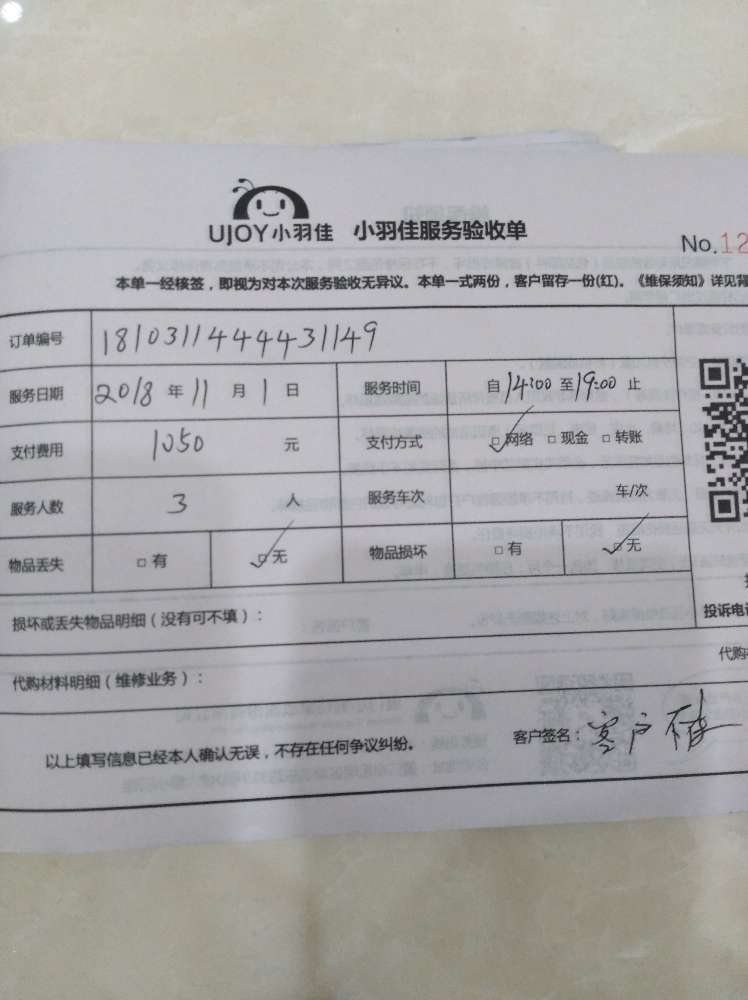 UJOY小羽佳 小羽佳服务验收单
No.12
本单一经核签，即视为对本次服务验收无异议。本单一式两份，客户留存一份(红)。《维保须知》详见背
订单编号 1810311444431149
服务日期 2018 年 11 月 1 日 服务时间 自 14:00 至 19:00 止
支付费用 1050 元 支付方式 □网络 □现金 □转账
服务人数 3 人 服务车次 车/次
物品丢失 □有 □无 物品损坏 □有 □无
损坏或丢失物品明细（没有可不填）：
投诉电话
代购材料明细（维修业务）：
代购
以上填写信息已经本人确认无误，不存在任何争议纠纷。
客户签名：客户不在